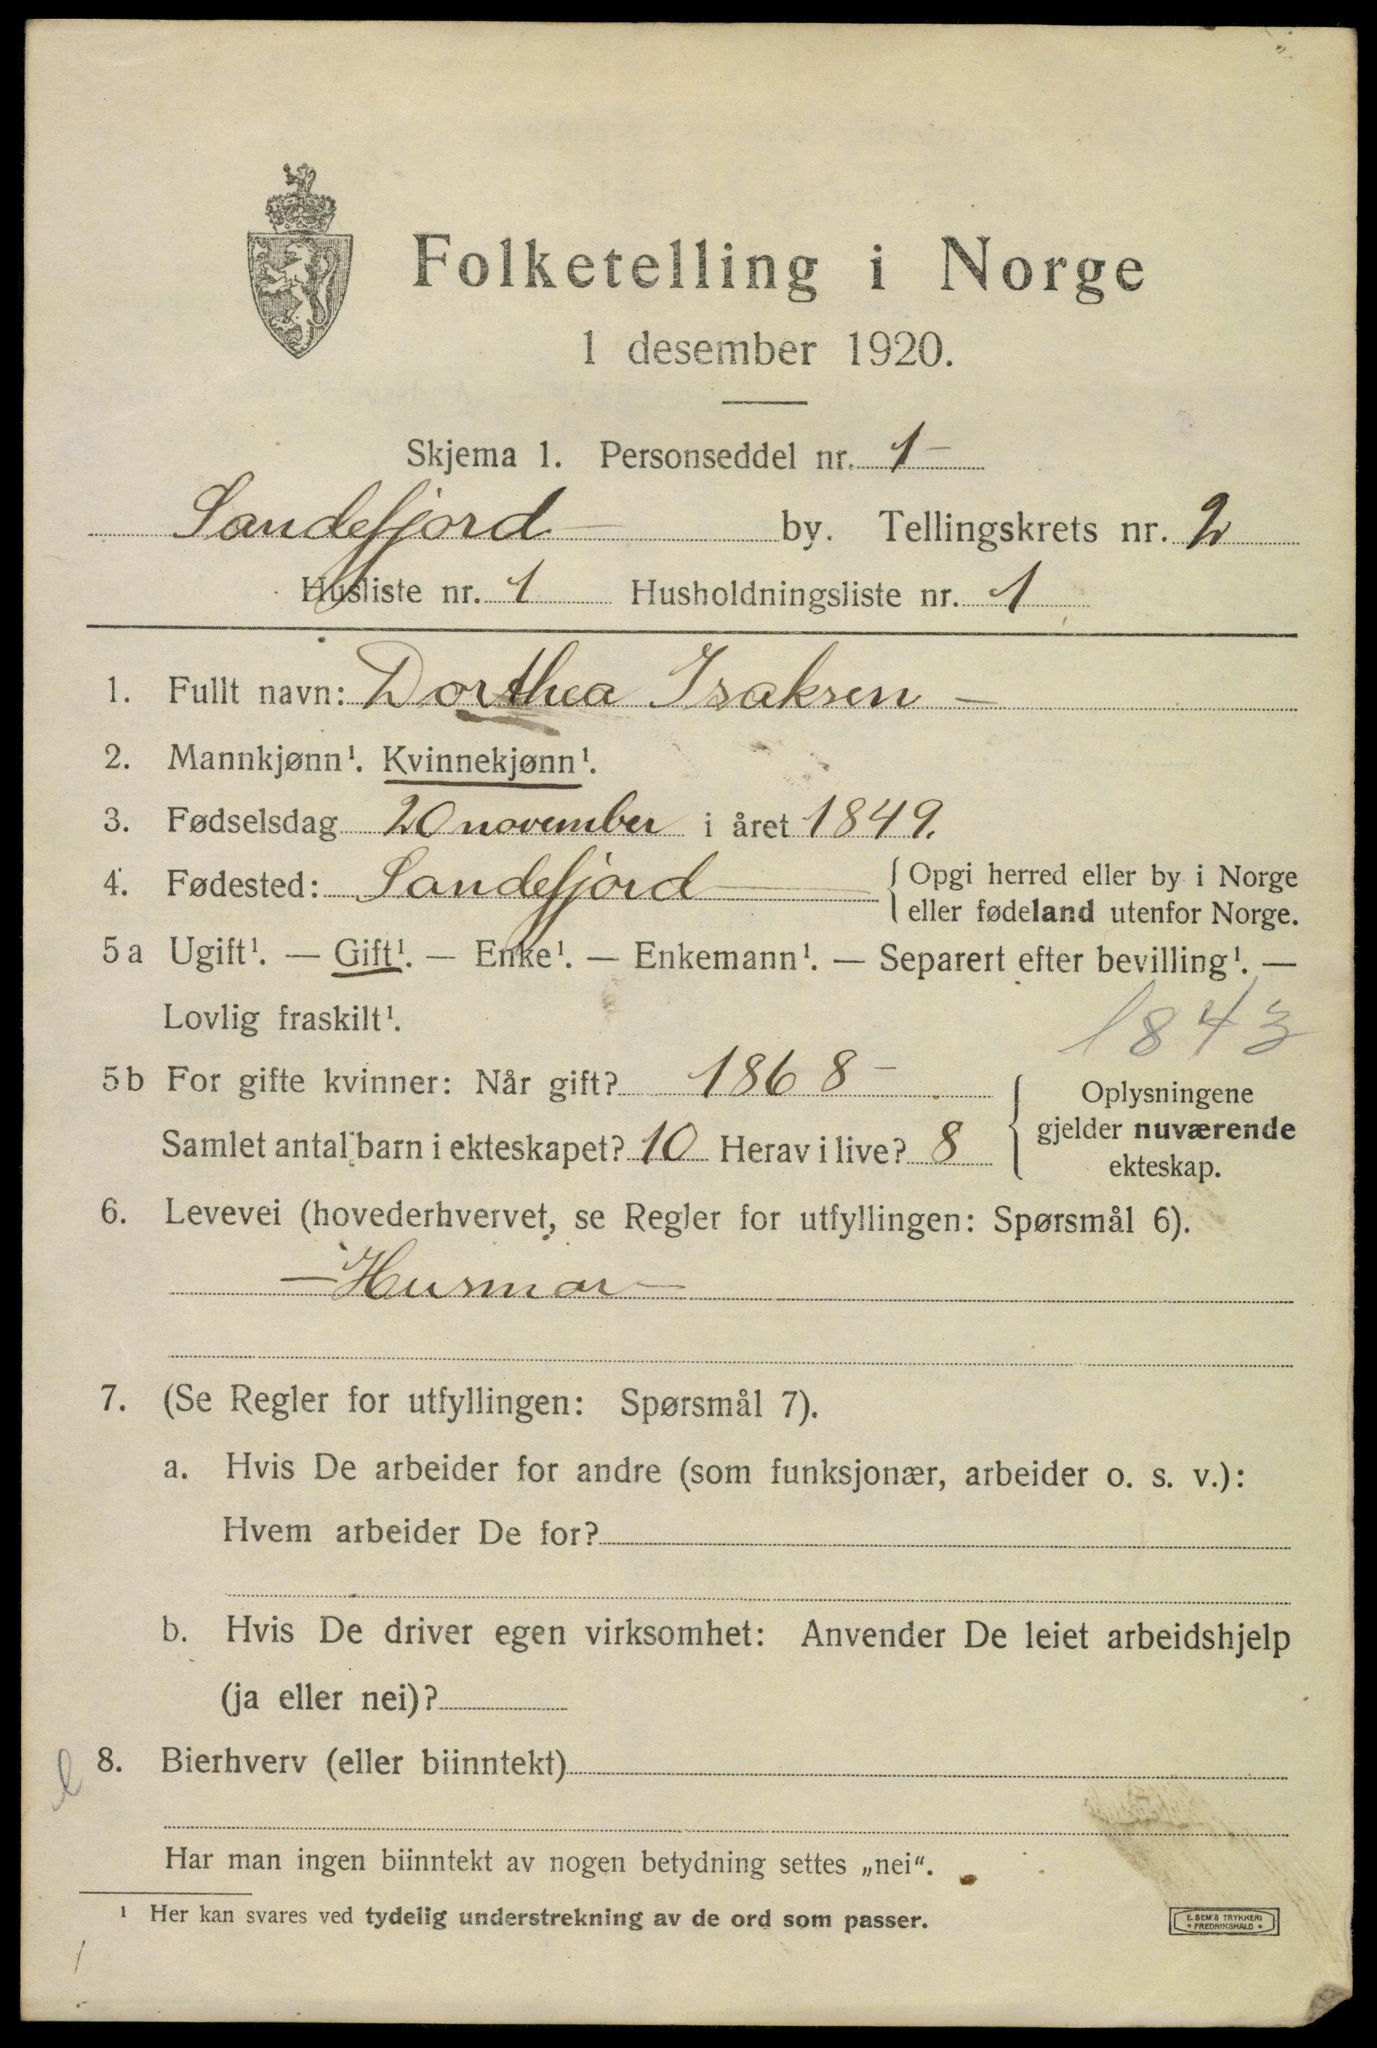 Folketelling i Norge
1 desember 1920.
Skjema 1. Personseddel nr. 1
Sandefjord by. Tellingskrets nr. 2
Husliste nr. 1 Husholdningsliste nr. 1
1. Fullt navn: Dorthea Isaksen
2. Mannkjønn¹. Kvinnekjønn¹.
3. Fødselsdag 20 november i året 1849.
4. Fødested: Sandefjord { Opgi herred eller by i Norge
eller fødeland utenfor Norge.
5a Ugift¹. — Gift¹. — Enke¹. — Enkemann¹. — Separert efter bevilling¹. —
Lovlig fraskilt¹.
1843
5b For gifte kvinner: Når gift? 1868
Samlet antal barn i ekteskapet? 10 Herav i live? 8
{ Oplysningene
gjelder nuværende
ekteskap.
6. Levevei (hovederhvervet, se Regler for utfyllingen: Spørsmål 6).
— Husmor —
7. (Se Regler for utfyllingen: Spørsmål 7).
a. Hvis De arbeider for andre (som funksjonær, arbeider o. s. v.):
Hvem arbeider De for?
b. Hvis De driver egen virksomhet: Anvender De leiet arbeidshjelp
(ja eller nei)?
8. Bierhverv (eller biinntekt)
Har man ingen biinntekt av nogen betydning settes „nei“.
¹ Her kan svares ved tydelig understrekning av de ord som passer.
E. SEM'S TRYKKERI
* FREDRIKSHALD *